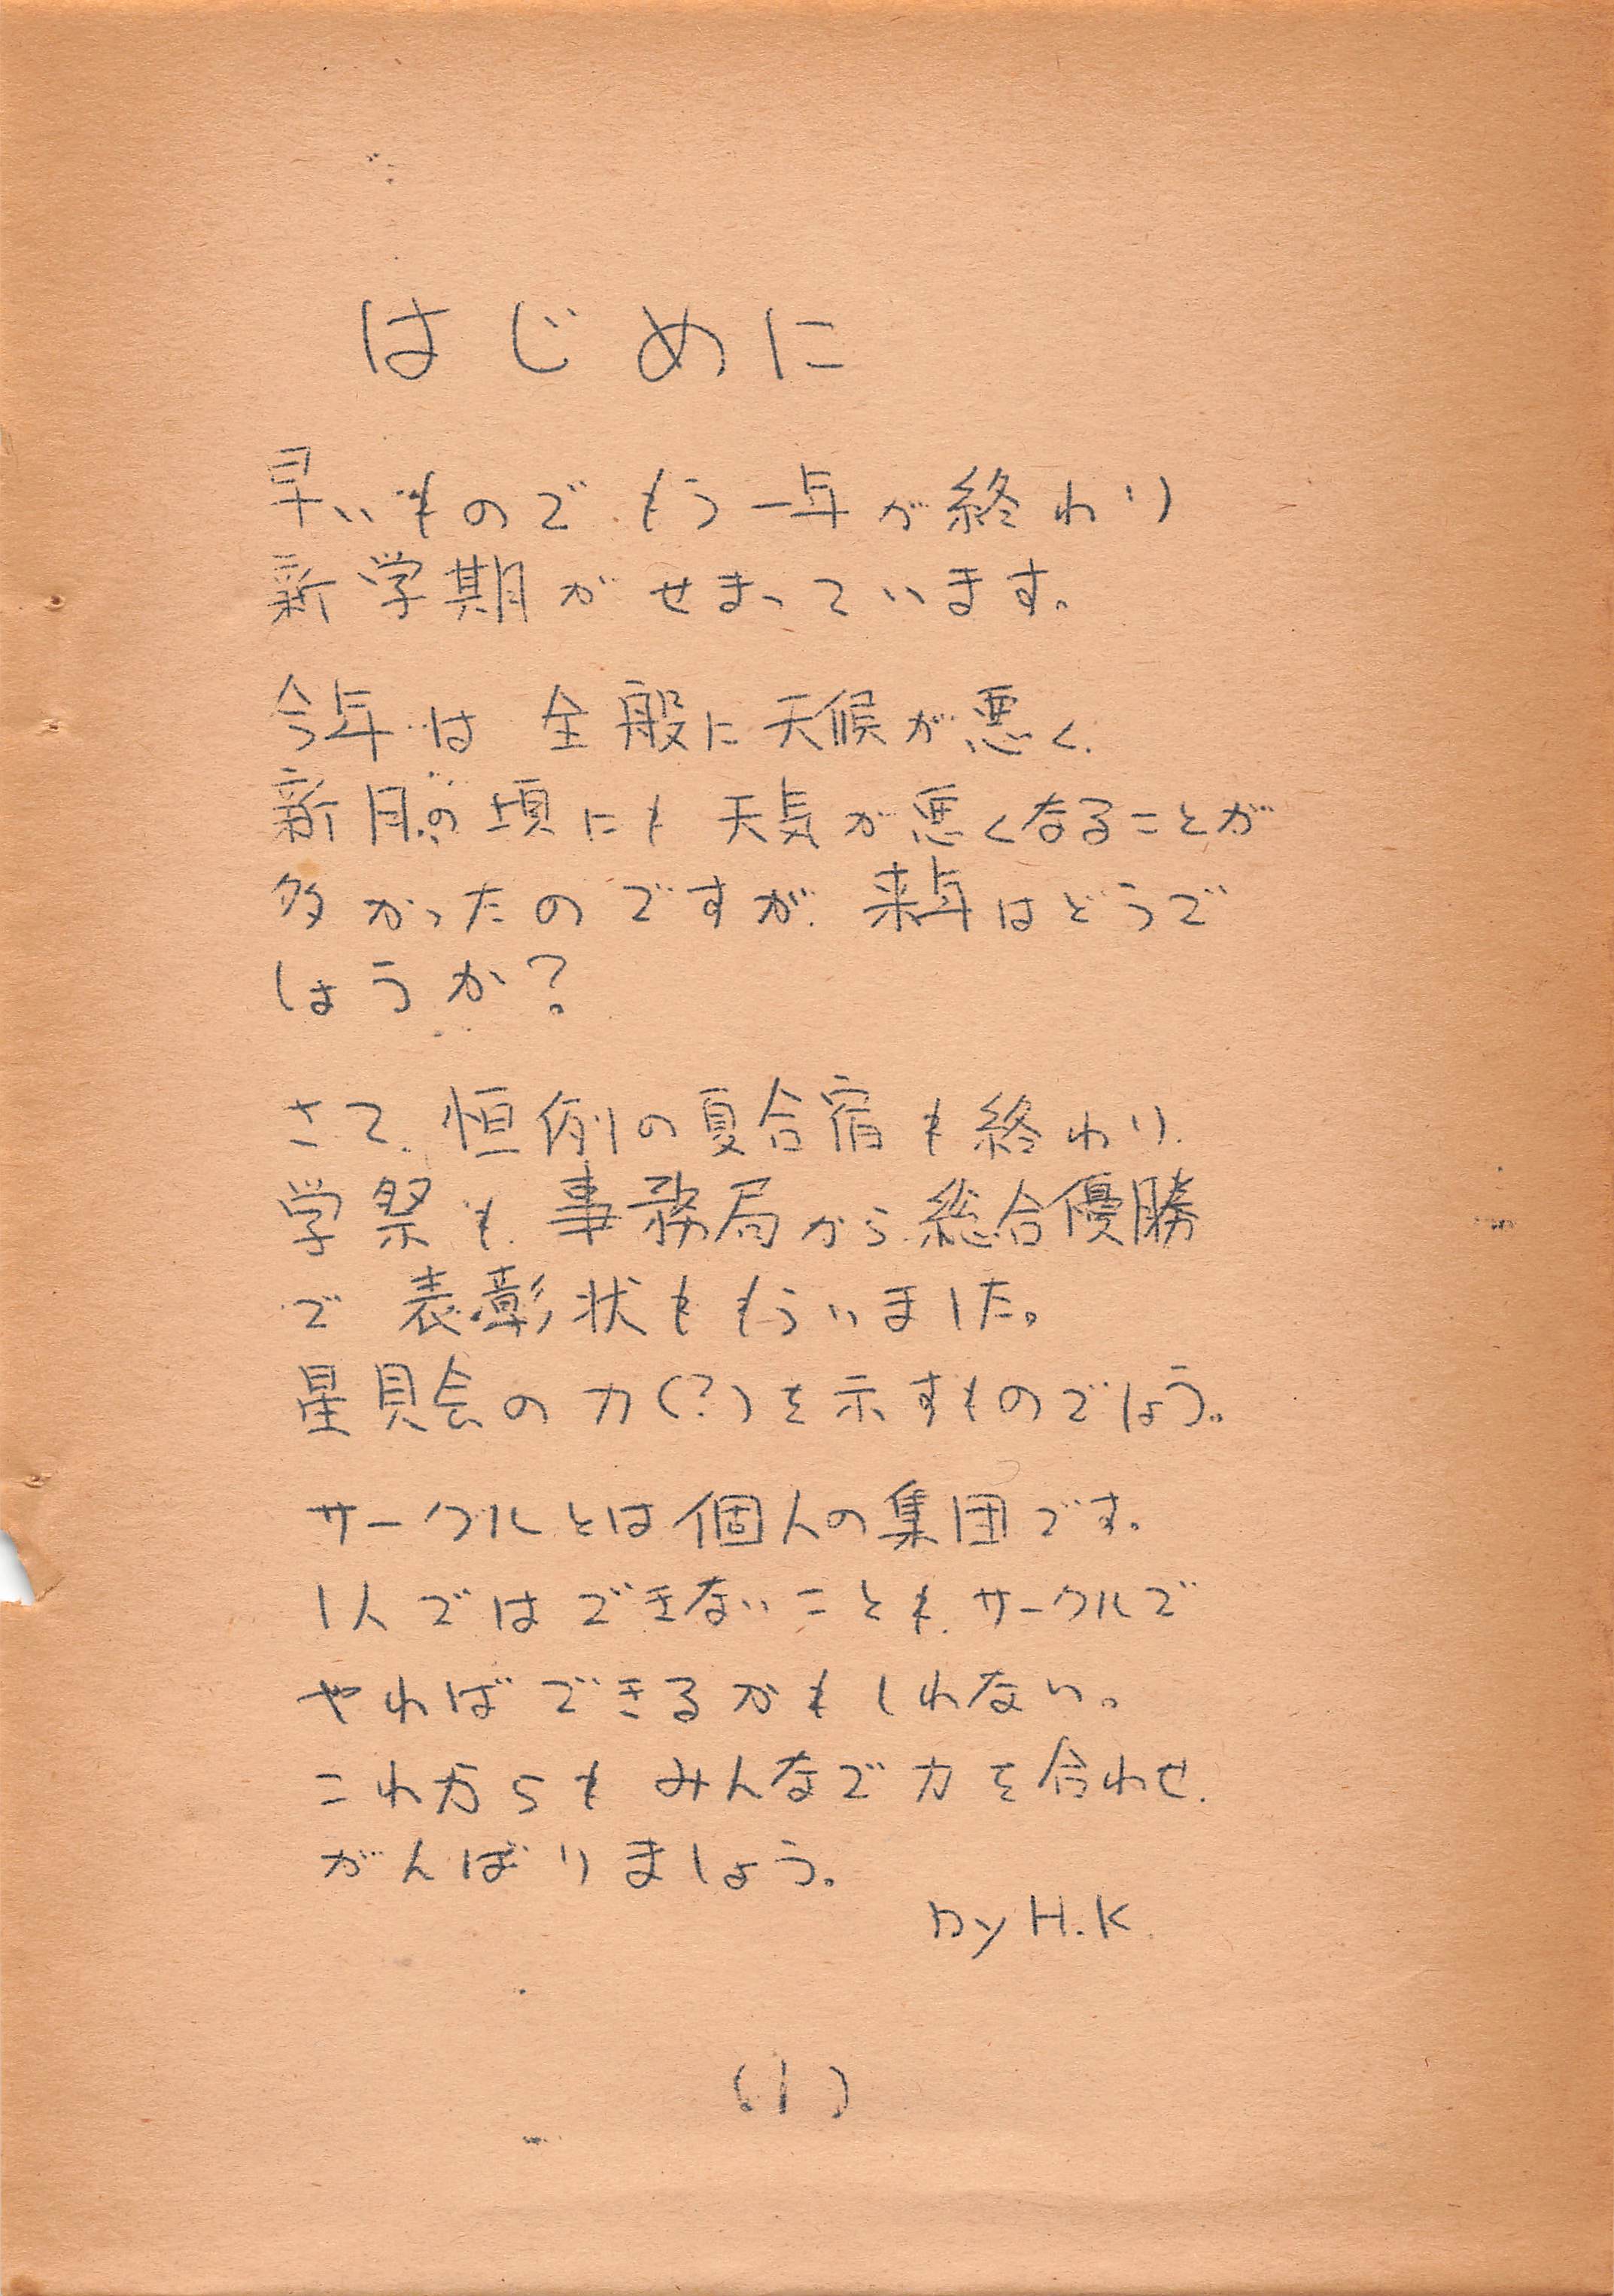 はじめに
早いもので もう一年が終わり
新学期がせまっています。
今年は 全般に天候が悪く、
新月の頃にも 天気が悪くなることが
多かったのですが、来年はどうで
しょうか?
さて、恒例の夏合宿も終わり、
学祭も、事務局から総合優勝
で 表彰状ももらいました。
星見会の力(?)を示すものでしょう。
サークルとは個人の集団です。
1人ではできないことも、サークルで
やればできるかもしれない。
これからも みんなで力を合わせ、
がんばりましょう。
by H.K.
(1)